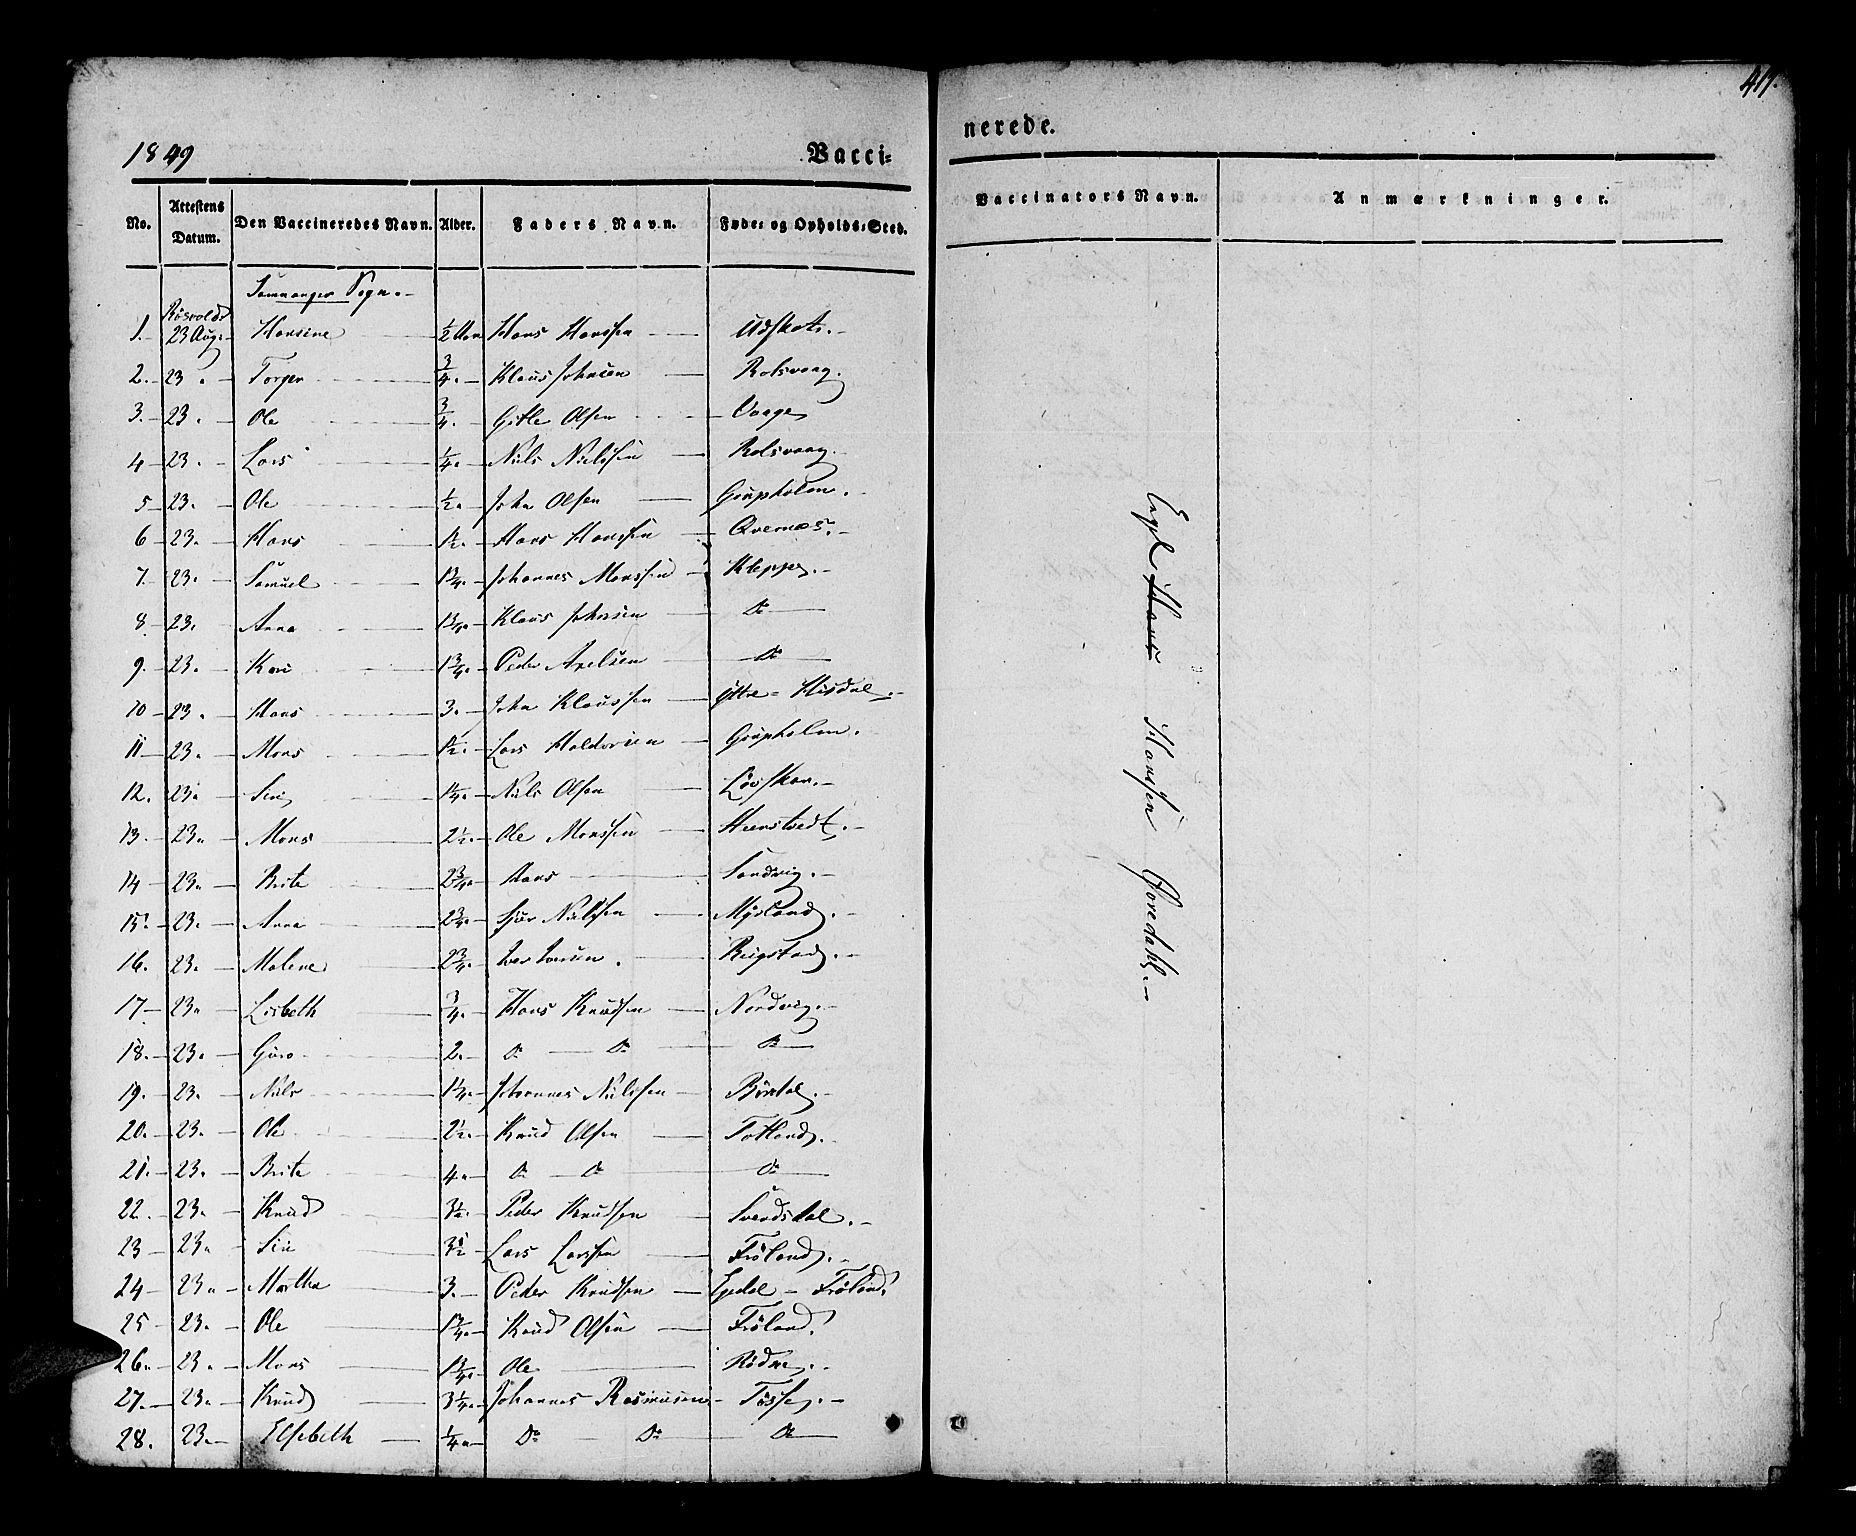 417.
1849 Vacci=
nerede.
No. Attestens Datum. Den Vaccineredes Navn. Alder. Faders Navn. Føde= og Opholds=Sted. Vaccinators Navn. Anmærkninger.
Samnanger Sogn.-
1. 23 Aug. Hansine ½ Hans Hanssen Udskot.-
2. 23 Torger ¾ Klaus Johnsen Rolsvaag.
3. 23. Ole ¾ Gitle Olsen Vaage
4 23. Lars ¼ Nils Nielssen Rolsvaag.
5 23. Ole ½ John Olsen Gripholm.
6 23. Hans 1½. Hans Hanssen Qvernæs.
7. 23. Samuel 1¾. Johannes Monssen Kleppe.
8 23. Anna 1¾. Klaus Johnsen Do
9. 23. Kari 1¾. Peder Axelsen Do
10 23. Hans 3. John Klaussen Ytre=Hisdal.
11 23. Mons 1½. Lars Haldorsen Gripholm.
12. 23. Siri 1¼. Nils Olsen Løvskar.
13. 23. Mons 2½. Ole Monssen
14 23. Brite 2¾. Hans Sandvig.
15. 23. Anna 2¾. Sjur Nielssen Mysland.
16. 23. Malene 2¾. Reigstad.
17 23. Lisbeth ¾. Hans Knudsen Nordvig.
18. 23. Guro 2. Do Do Do
19. 23. Nils 1¼. Johannes Nielssen Børdal.
20. 23. Ole 2½. Knud Olsen Totland.
21. 23. Brite 4. Do Do Do
22. 23. Knud 3½. Peder Knudsen Svendsdal.
23 23. Siri 3½ Lars Larssen Frøland.
24 23. Martha 3. Peder Knudsen Eședal - Frøland.
25 23. Ole 1¾. Knud Olsen Frøland.
26. 23. Mons 1¾. Ole Rødne.
27. 23. Knud 3¼. Johannes Rasmussen Tøsse.
28. 23. Elsebeth ¼. Do Do Do
Engel Hansen Gjøredahl.-